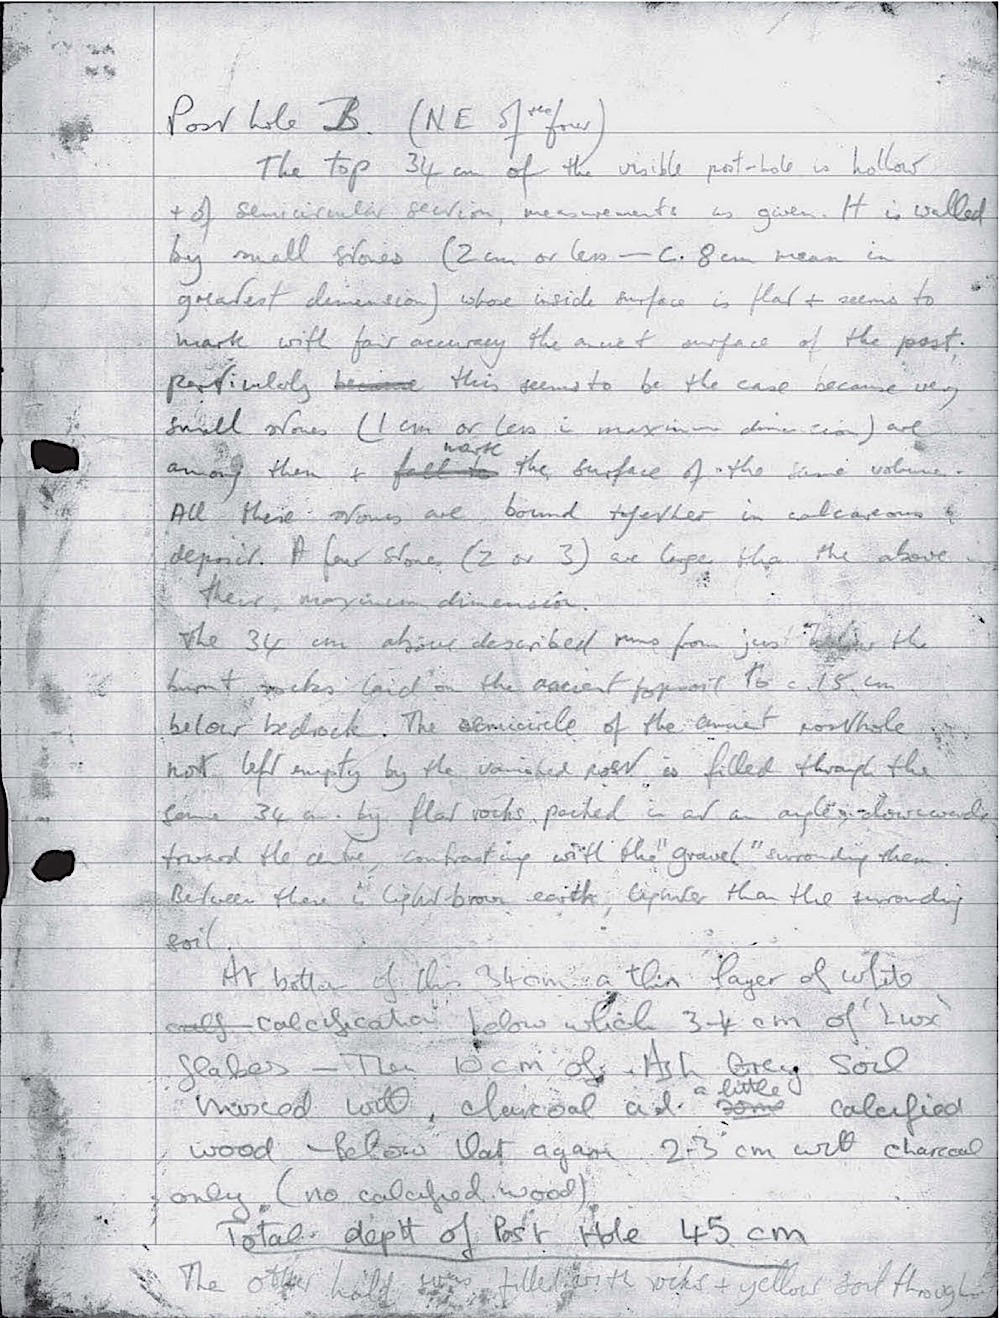 Post hole B. (NE of the four)
The top 34 cm of the visible post-hole is hollow
+ of semicircular section, measurements as given. It is walled
by small stones (2 cm or less — c. 8 cm mean in
greatest dimension) whose inside surface is flat + seems to
mark with fair accuracy the surface of the post.
Particularly this seems to be the case because very
small stones (1 cm or less in maximum dimension) are
among them + mark the surface of the same volume.
All these stones are bound together in calcareous
deposit. A few stones (2 or 3) are larger than the above
maximum dimension.
The 34 cm above described runs from just below the
burnt rocks laid on the ancient topsoil to c. 15 cm
below bedrock. The semicircle of the posthole
not left empty by the vanished post is filled through the
same 34 cm. by flat rocks packed in at an angle downwards
toward the centre, contrasting with the "gravel" surrounding them.
Between these is light brown earth, lighter than the surrounding
soil.
At bottom of this 34 cm a thin layer of white
calcification below which 3-4 cm of 'Lux'
flakes — Then 10 cm of Ash Grey Soil
with charcoal and a little calcified
wood — below that again 2-3 cm with charcoal
only (no calcified wood)
Total depth of Post Hole 45 cm
The other half was filled with rocks + yellow soil through